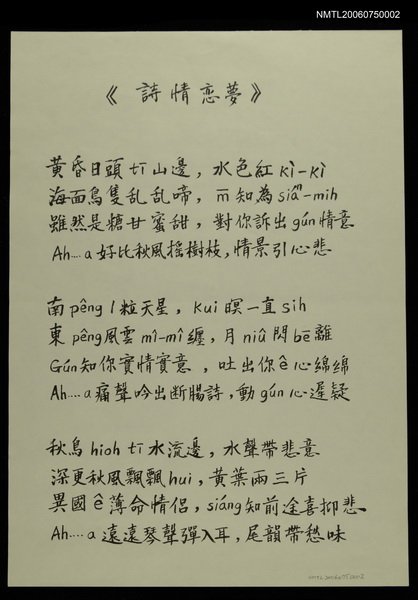 NMTL20060750002
《詩情恋夢》
黃昏日頭tī山邊，水色紅kì-kì
海面鳥隻乱乱啼，m̄知為siáⁿ-mih
雖然是糖甘蜜甜，對你訴出gún情意
Ah....a好比秋風搖樹枝，情景引心悲
南pêng 1粒天星，kui暝一直sih
東pêng風雲mî-mî纏，月niû閃bē離
Gún知你實情實意，吐出你ê心綿綿
Ah....a痛聲吟出断腸詩，動gún心遲疑
秋鳥hioh tī水流邊，水聲帶悲意
深更秋風飄飄hui，黃葉兩三片
異國ê薄命情侶，siáng知前途喜抑悲
Ah....a遠遠琴聲彈入耳，尾韻帶愁味
NMTL20060750002